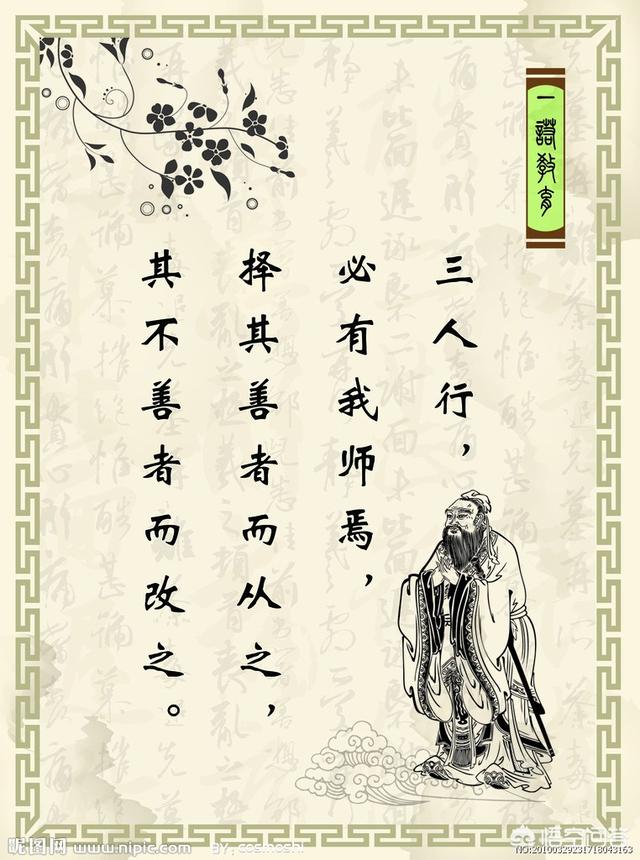 一諾教育
三人行，
必有我师焉，
择其善者而从之，
其不善者而改之。
昵图网 www.nipic.com BY: cosmoshi
悟空问答
NO:20100329231718043163